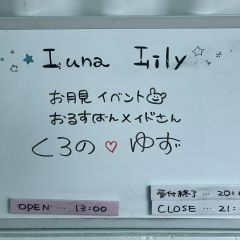 Luna Lily
お月見イベント
おるすばんメイドさん
くろの♡ゆず
OPEN .... 13:00
受付終了 ... 20:
CLOSE .... 21: